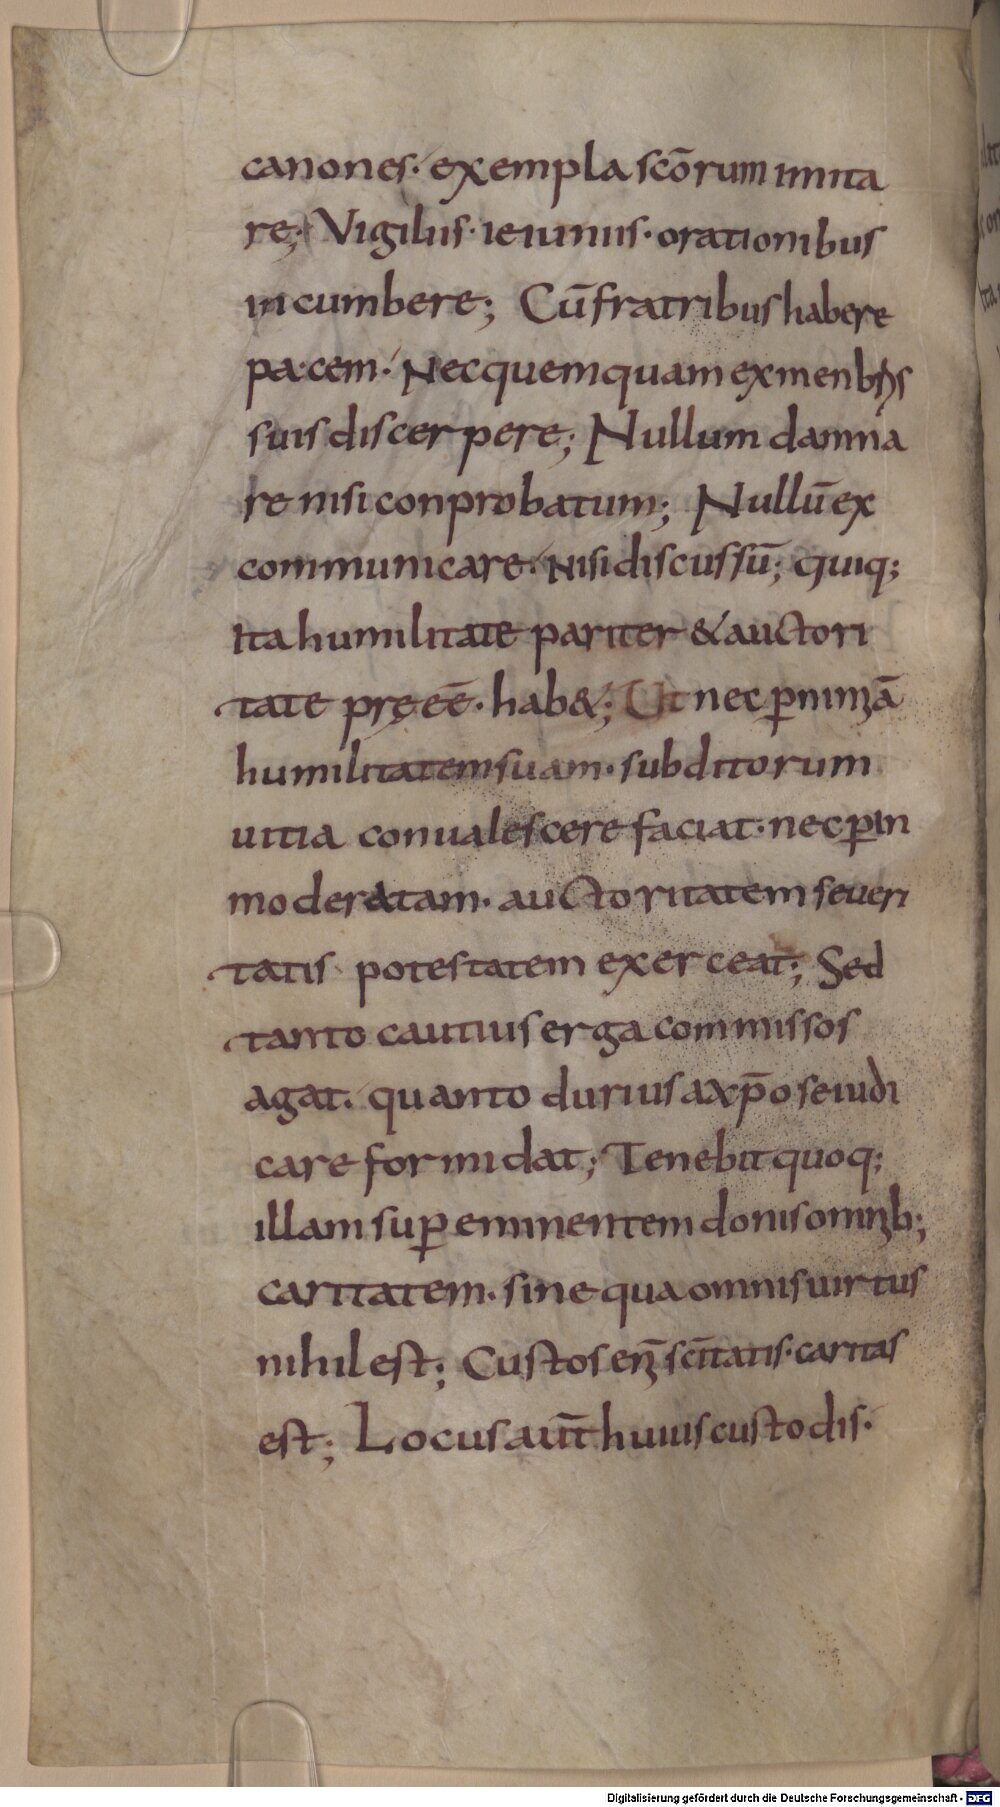 canones· exempla scōrum imita
re; Vigiliis· ieiuniis· orationibus
incumbere; Cū fratribus habere
pacem· Nec quemquam ex menbris
suis discerpere; Nullum damna
re nisi conprobatum; Nullū ex
communicare· Nisi discussū; quiq;
ita humilitate pariter & auctori
tate pręeē· hab&; Ut nec ꝑ nimiā
humilitatem suam· subditorum
uitia conualescere faciat· nec ꝑ in
moderatam· auctoritatem severi
tatis potestatem exerceat; Sed
tanto cautius erga commissos
agat· quanto durius a xp̄o se iudi
care formidat; Tenebit quoq;
illam suꝑeminentem donis omnib;
caritatem· sine qua omnis uirtus
nihil est; Custos eni̅ scītatis· caritas
est; Locus aūt huius custodis·
Digitalisierung gefördert durch die Deutsche Forschungsgemeinschaft - DFG